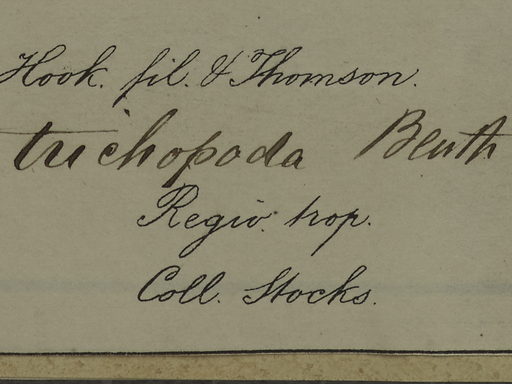 Hook. fil. & Thomson.
trichopoda Benth
Regio. trop.
Coll. Stocks.